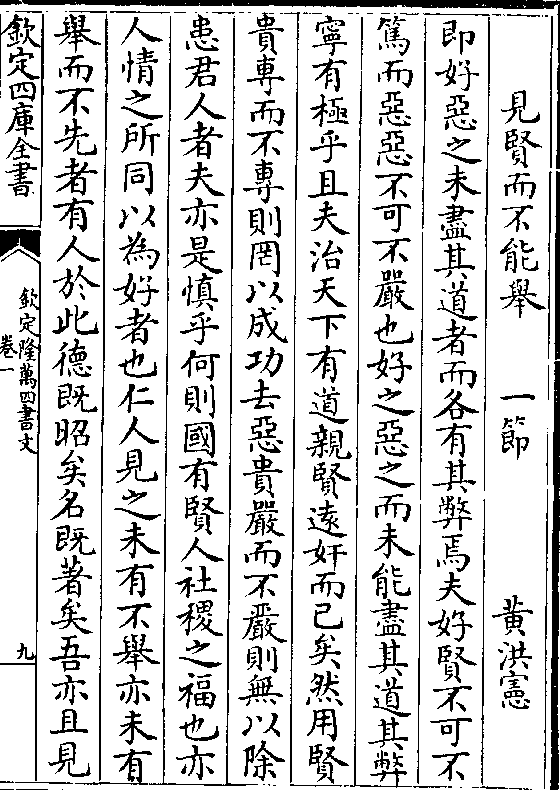 見賢而不能舉　一節　黃洪憲
即好惡之未盡其道者而各有其弊焉夫好賢不可不
篤而惡惡不可不嚴也好之惡之而未能盡其道其弊
寧有極乎且夫治天下有道親賢遠奸而已矣然用賢
貴專而不專則罔以成功去惡貴嚴而不嚴則無以除
患君人者夫亦是慎乎何則國有賢人社稷之福也亦
人情之所同以為好者也仁人見之未有不舉亦未有
舉而不先者有人於此德既昭矣名既著矣吾亦且見
欽定四庫全書
欽定隆萬四書文
卷一
九